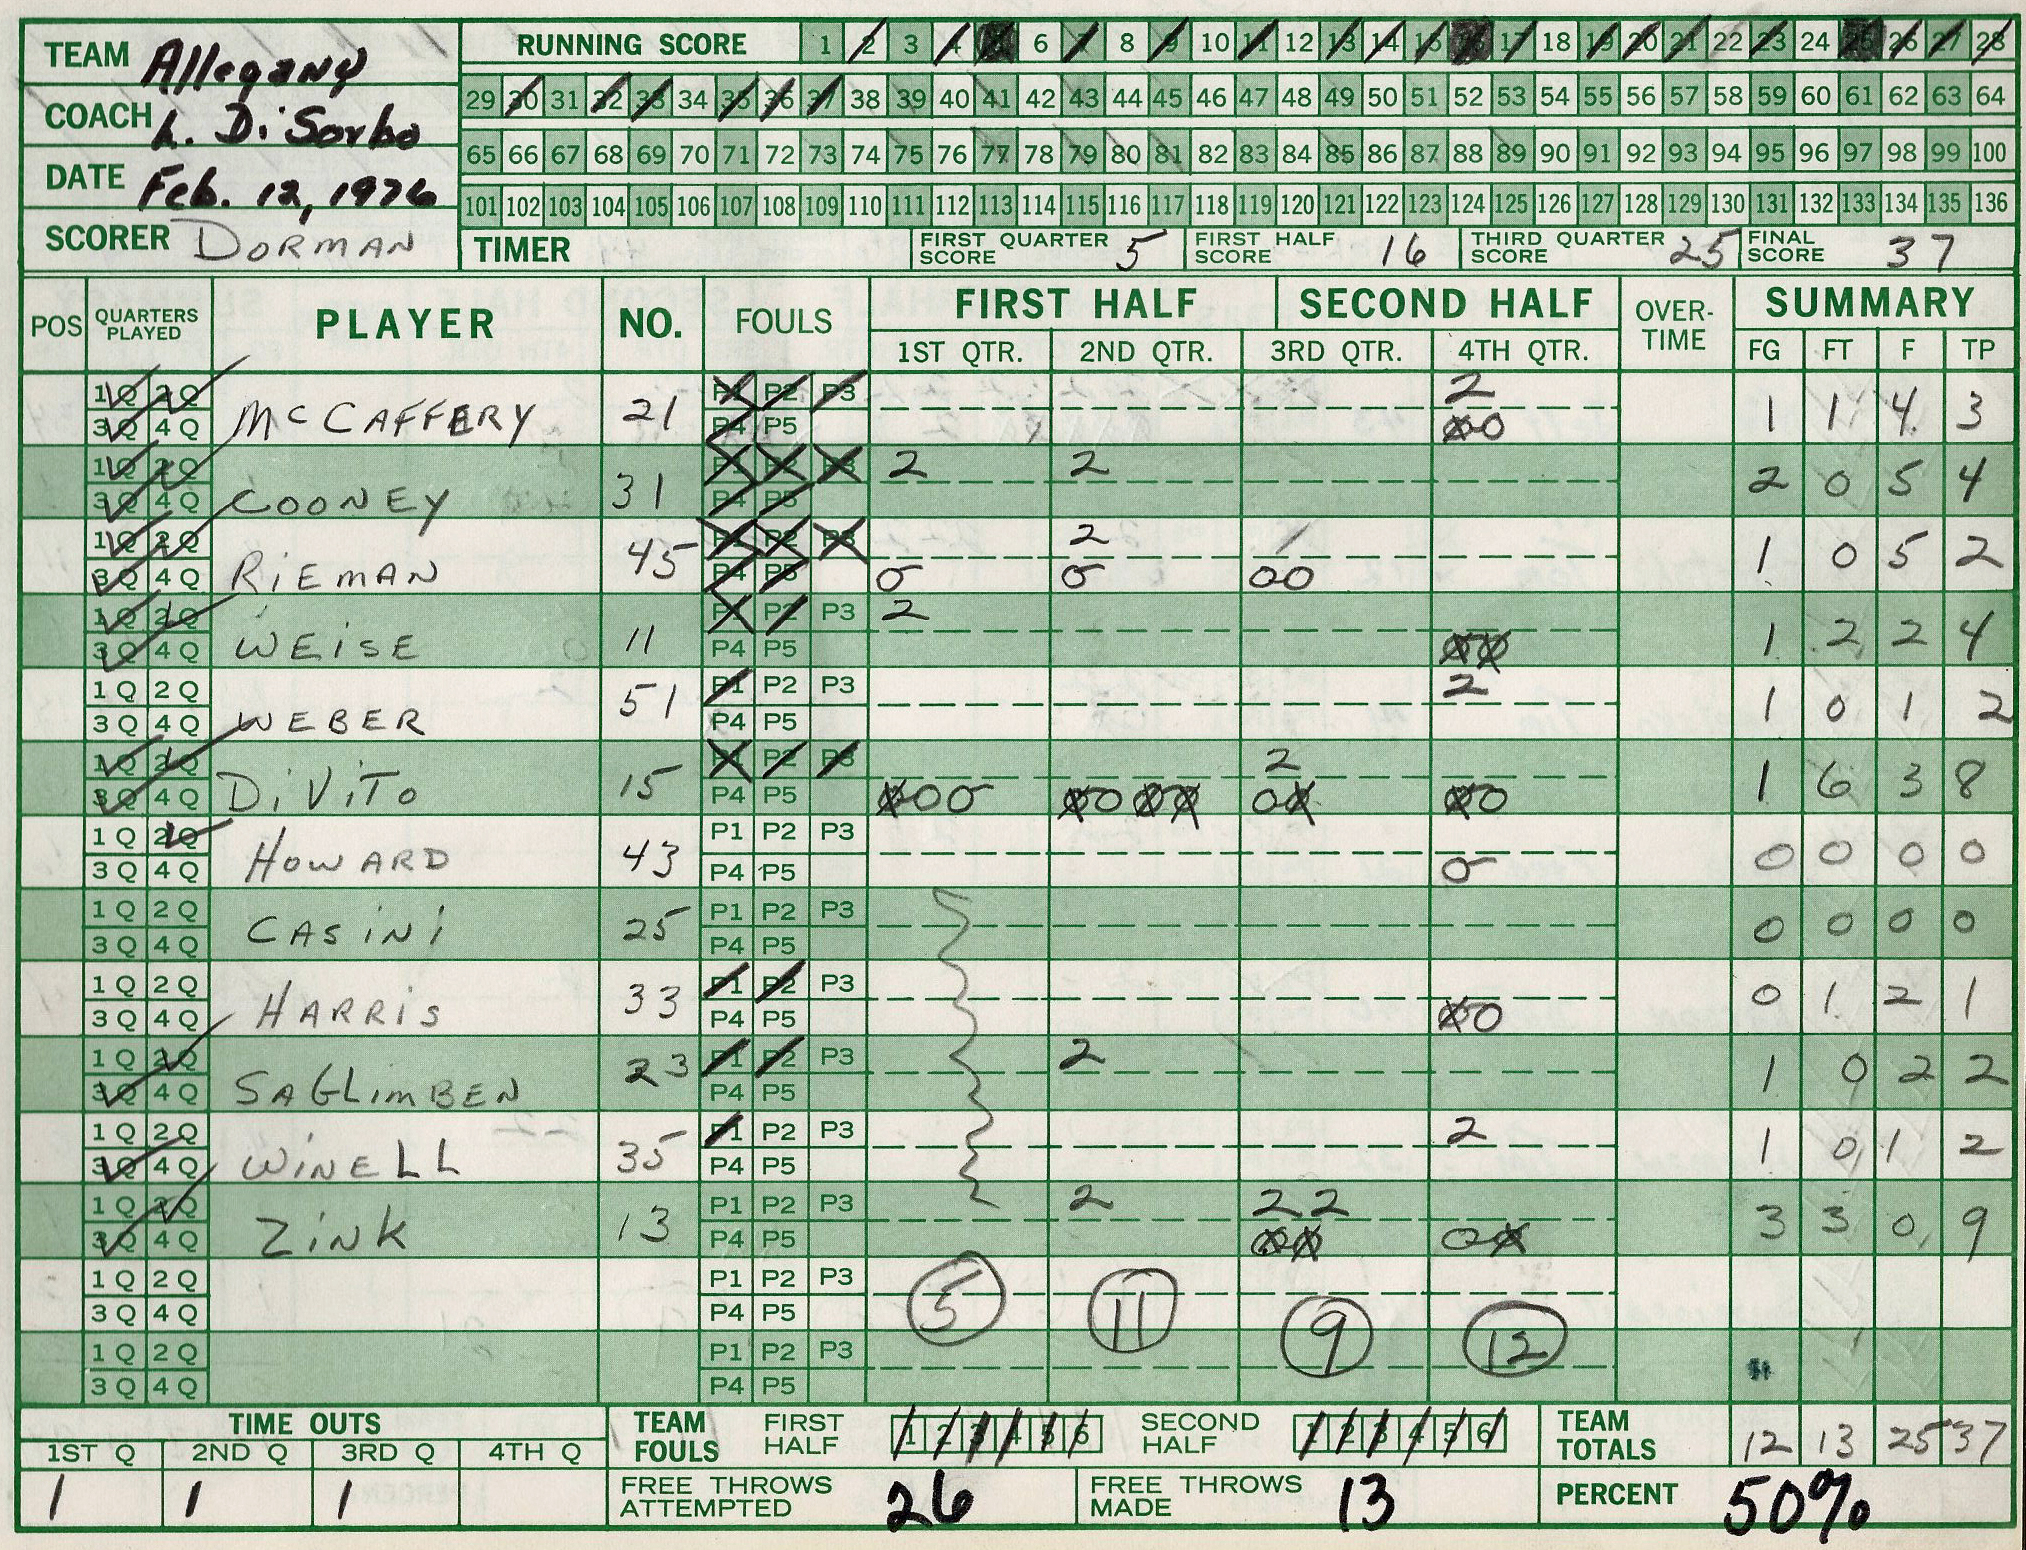 TEAM Allegany
COACH L. DiSorbo
DATE Feb. 12, 1976
SCORER DORMAN
RUNNING SCORE 1 2 3 4 5 6 7 8 9 10 11 12 13 14 15 16 17 18 19 20 21 22 23 24 25 26 27 28
29 30 31 32 33 34 35 36 37 38 39 40 41 42 43 44 45 46 47 48 49 50 51 52 53 54 55 56 57 58 59 60 61 62 63 64
65 66 67 68 69 70 71 72 73 74 75 76 77 78 79 80 81 82 83 84 85 86 87 88 89 90 91 92 93 94 95 96 97 98 99 100
101 102 103 104 105 106 107 108 109 110 111 112 113 114 115 116 117 118 119 120 121 122 123 124 125 126 127 128 129 130 131 132 133 134 135 136
TIMER FIRST QUARTER SCORE 5 FIRST HALF SCORE 16 THIRD QUARTER SCORE 25 FINAL SCORE 37
POS QUARTERS PLAYED PLAYER NO. FOULS FIRST HALF SECOND HALF OVER-TIME SUMMARY
1ST QTR. 2ND QTR. 3RD QTR. 4TH QTR. FG FT F TP
1Q 2Q P1 P2 P3 2
3Q 4Q McCAFFERY 21 P4 P5 00 1 1 4 3
1Q 2Q P1 P2 P3 2 2
3Q 4Q COONEY 31 P4 P5 2 0 5 4
1Q 2Q P1 P2 P3 2
3Q 4Q RIEMAN 45 P4 P5 0 0 00 1 0 5 2
1Q 2Q P1 P2 P3 2
3Q 4Q WEISE 11 P4 P5 00 1 2 2 4
1Q 2Q P1 P2 P3 2
3Q 4Q WEBER 51 P4 P5 1 0 1 2
1Q 2Q P1 P2 P3 2
3Q 4Q DiViTo 15 P4 P5 000 0000 00 00 1 6 3 8
1Q 2Q P1 P2 P3
3Q 4Q HOWARD 43 P4 P5 0 0 0 0 0
1Q 2Q P1 P2 P3
3Q 4Q CASINI 25 P4 P5 0 0 0 0
1Q 2Q P1 P2 P3
3Q 4Q HARRIS 33 P4 P5 00 0 1 2 1
1Q 2Q P1 P2 P3 2
3Q 4Q SAGLIMBEN 23 P4 P5 1 0 2 2
1Q 2Q P1 P2 P3 2
3Q 4Q WINELL 35 P4 P5 1 0 1 2
1Q 2Q P1 P2 P3 2 2 2
3Q 4Q ZINK 13 P4 P5 00 00 3 3 0 9
1Q 2Q P1 P2 P3
3Q 4Q P4 P5 5 11 9 12
1Q 2Q P1 P2 P3
3Q 4Q P4 P5
TIME OUTS TEAM FOULS FIRST HALF 1 2 3 4 5 6 SECOND HALF 1 2 3 4 5 6 TEAM TOTALS 12 13 25 37
1ST Q 2ND Q 3RD Q 4TH Q
1 1 1 FREE THROWS ATTEMPTED 26 FREE THROWS MADE 13 PERCENT 50%